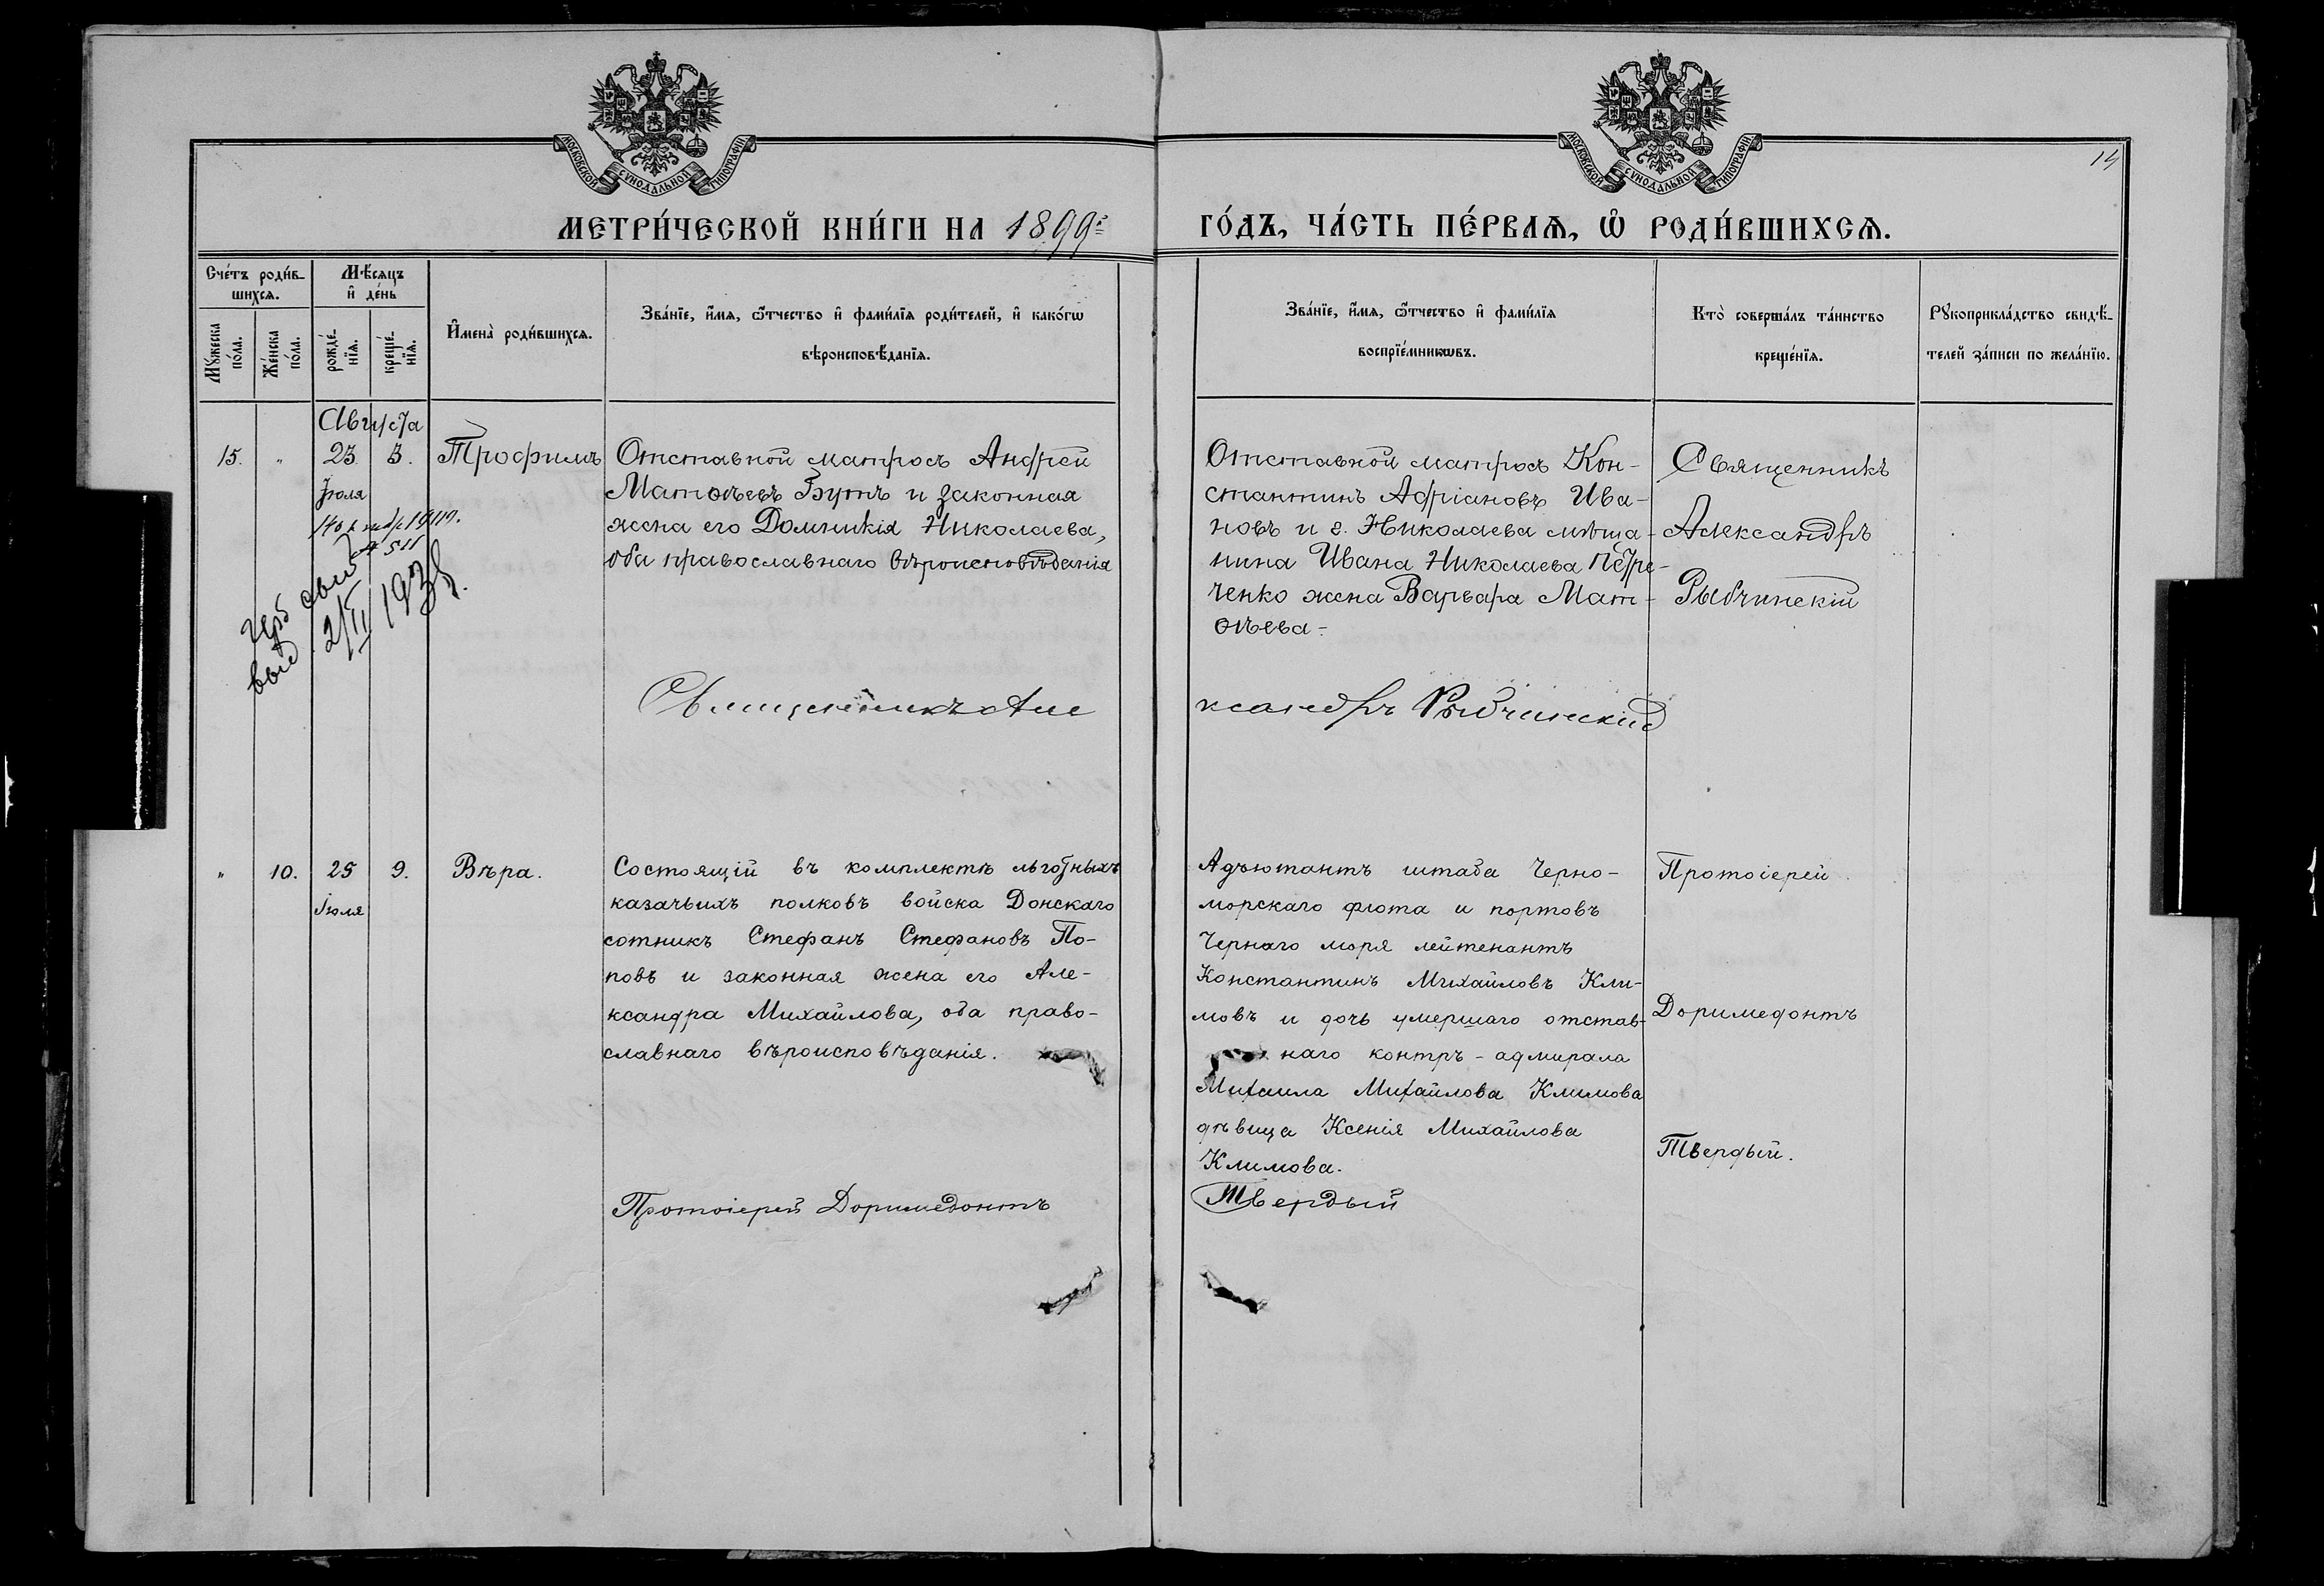 МОСКОВСКОЙ СѴНОДАЛЬНОЙ ТИПОГРАФІИ
МОСКОВСКОЙ СѴНОДАЛЬНОЙ ТИПОГРАФІИ
14
МЕТРИ́ЧЕСКОЙ КНИ́ГИ НА 1899й
ГО́ДЪ, ЧА́СТЬ ПЕ́РВАѦ, Ѽ РОДИ́ВШИХСѦ.
Сче́тъ роди́в-
шихсѧ.
Мѣ́сяцъ
и҆ де́нь
Мꙋ́жеска
по́ла.
Же́нска
по́ла.
рожде́-
нїѧ.
креще́-
нїѧ.
И҆мена̀ роди́вшихсѧ.
Зва́нїе, и҆́мѧ, ѻ҆́тчество и҆ фами́лїѧ роди́телей, и҆ како́гѡ
вѣроисповѣ́данїѧ.
Зва́нїе, и҆́мѧ, ѻ҆́тчество и҆ фами́лїѧ
воспрїе́мникѡвъ.
Кто̀ соверша́лъ та́инство
креще́нїѧ.
Рꙋкоприкла́дство свидѣ́-
телей за́писи по жела́нїю.
Августа
15. „ 23 3. Трофимъ
Іюля
Отставной матросъ Андрей
Матвѣевъ Бутъ и законная
жена его Домникія Николаева,
оба православнаго вѣроисповѣданія
Отставной матросъ Кон-
стантинъ Адріановъ Ива-
новъ и г. Николаева мѣща-
нина Ивана Николаева Петре-
ченко жена Варвара Мат-
вѣева-
Священникъ
Александръ
Рыбчинскій
№ 511
выд 2/II 1938
Священникъ Але
ксандръ Рыбчинскій
„ 10. 25 9. Вѣра.
Іюля
Состоящій въ комплектѣ льготныхъ
казачьихъ полковъ войска Донскаго
сотникъ Стефанъ Стефановъ По-
повъ и законная жена его Але-
ксандра Михайлова, оба право-
славнаго вѣроисповѣданія.
Адъютантъ штаба Черно-
морскаго флота и портовъ
Чернаго моря лейтенантъ
Константинъ Михайловъ Кли-
мовъ и дочь умершаго отстав-
наго контръ-адмирала
Михаила Михайлова Климова
дѣвица Ксенія Михайлова
Климова.
Протоіерей
Доримедонтъ
Твердый.
Протоіерей Доримедонтъ
Твердый